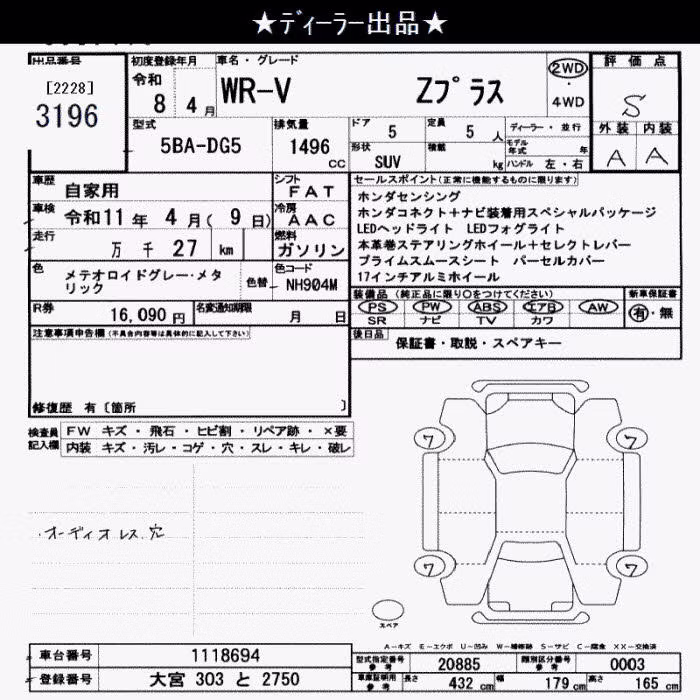 ★ディーラー出品★
出品番号
[2228]
3196
初度登録年月
令和
8 4月
車名・グレード
WR-V Zプラス
2WD
・
4WD
評価点
S
外装 内装
A A
型式
5BA-DG5
排気量
1496
CC
ドア
5
定員
5人
形状
SUV
積載
kg
ディーラー・並行
モデル年式 年
ハンドル 左・右
車歴
自家用
シフト
FAT
車検
令和11年 4月( 9日)
冷房
AAC
走行
万千27 km
燃料
ガソリン
色
メテオロイドグレー・メタリック
色替
色コード
NH904M
R券
16,090円
名変通知期限
月 日
セールスポイント(正常に機能するものに限ります)
ホンダセンシング
ホンダコネクト+ナビ装着用スペシャルパッケージ
LEDヘッドライト LEDフォグライト
本革巻ステアリングホイール+セレクトレバー
プライムスムースシート パーセルカバー
17インチアルミホイール
装備品(純正品に限り○をつけてください)
PS PW ABS エアB AW
SR ナビ TV カワ
新車保証書
有・無
後日品
保証書・取説・スペアキー
注意事項申告欄(不具合内容等は具体的に記入して下さい)
修復歴 有〔箇所 〕
検査員記入欄
FW キズ・飛石・ヒビ割・リペア跡・×要
内装 キズ・汚レ・コゲ・穴・スレ・キレ・破レ
・オーディオレス穴
ワ ワ
ワ ワ
スペア
A-キズ E-エクボ U-凹み W-補修跡 S-サビ C-腐食 XX-交換済
車台番号
1118694
登録番号
大宮 303 と 2750
型式指定番号
参考
20885
類別区分番号
参考
0003
車庫証明用
参考
長さ 432 cm 幅 179 cm 高さ 165 cm